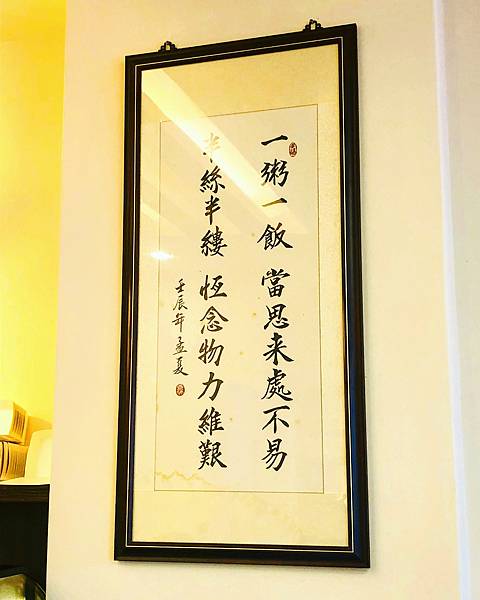 一粥一飯 當思来處不易
半絲半縷 恆念物力維艱
壬辰年孟夏